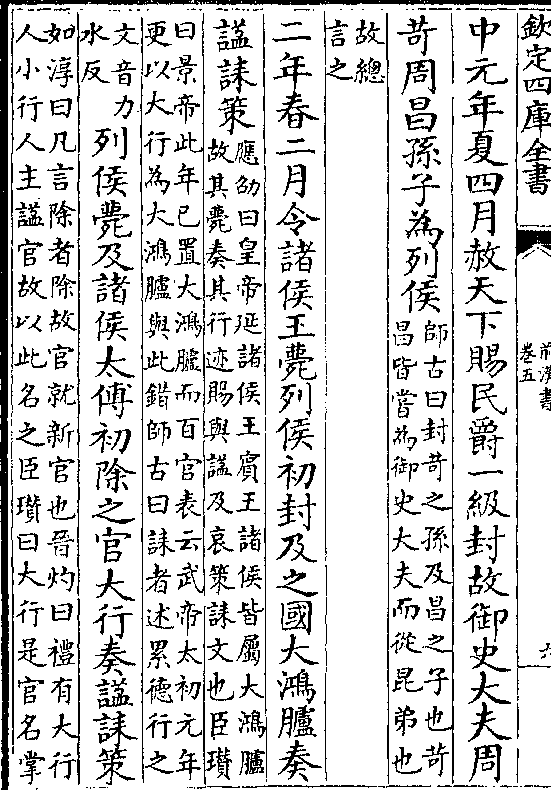 欽定四庫全書
前漢書
卷五
六
中元年夏四月赦天下賜民爵一級封故御史大夫周
苛周昌孫子為列侯
師古曰封苛之孫及昌之子也苛
昌皆嘗為御史大夫而從昆弟也
故總
言之
二年春二月令諸侯王薨列侯初封及之國大鴻臚奏
諡誄策
應劭曰皇帝延諸侯王賓王諸侯皆屬大鴻臚
故其薨奏其行迹賜與諡及哀策誄文也臣瓚
曰景帝此年已置大鴻臚而百官表云武帝太初元年
更以大行為大鴻臚與此錯師古曰誄者述累德行之
文音力
水反
列侯薨及諸侯太傅初除之官大行奏諡誄策
如淳曰凡言除者除故官就新官也晉灼曰禮有大行
人小行人主諡官故以此名之臣瓚曰大行是官名掌